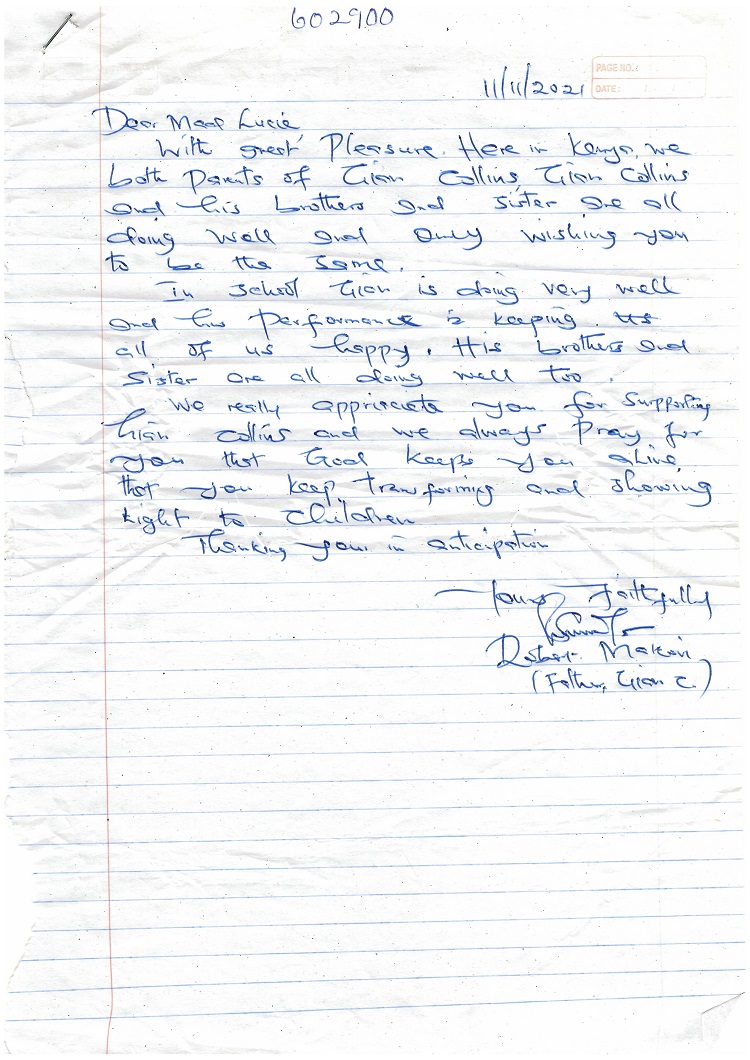 602900
PAGE NO.:
DATE: / /
11/11/2021
Dear Maad Lucie,
With great Pleasure. Here in Kenya, we
both parents of Gian Collins, Gian Collins
and his brothers and sister are all
doing well and only wishing you
to be the same.
In school Gian is doing very well
and his performance is keeping us
all of us happy. His brothers and
sister are all doing well too.
We really appriciate you for supporting
Gian Collins and we always pray for
you that God keeps you alive,
that you keep transforming and showing
light to children
Thanking you in anticipation
Yours Faithfully
Robert Makori
(Father, Gian C.)